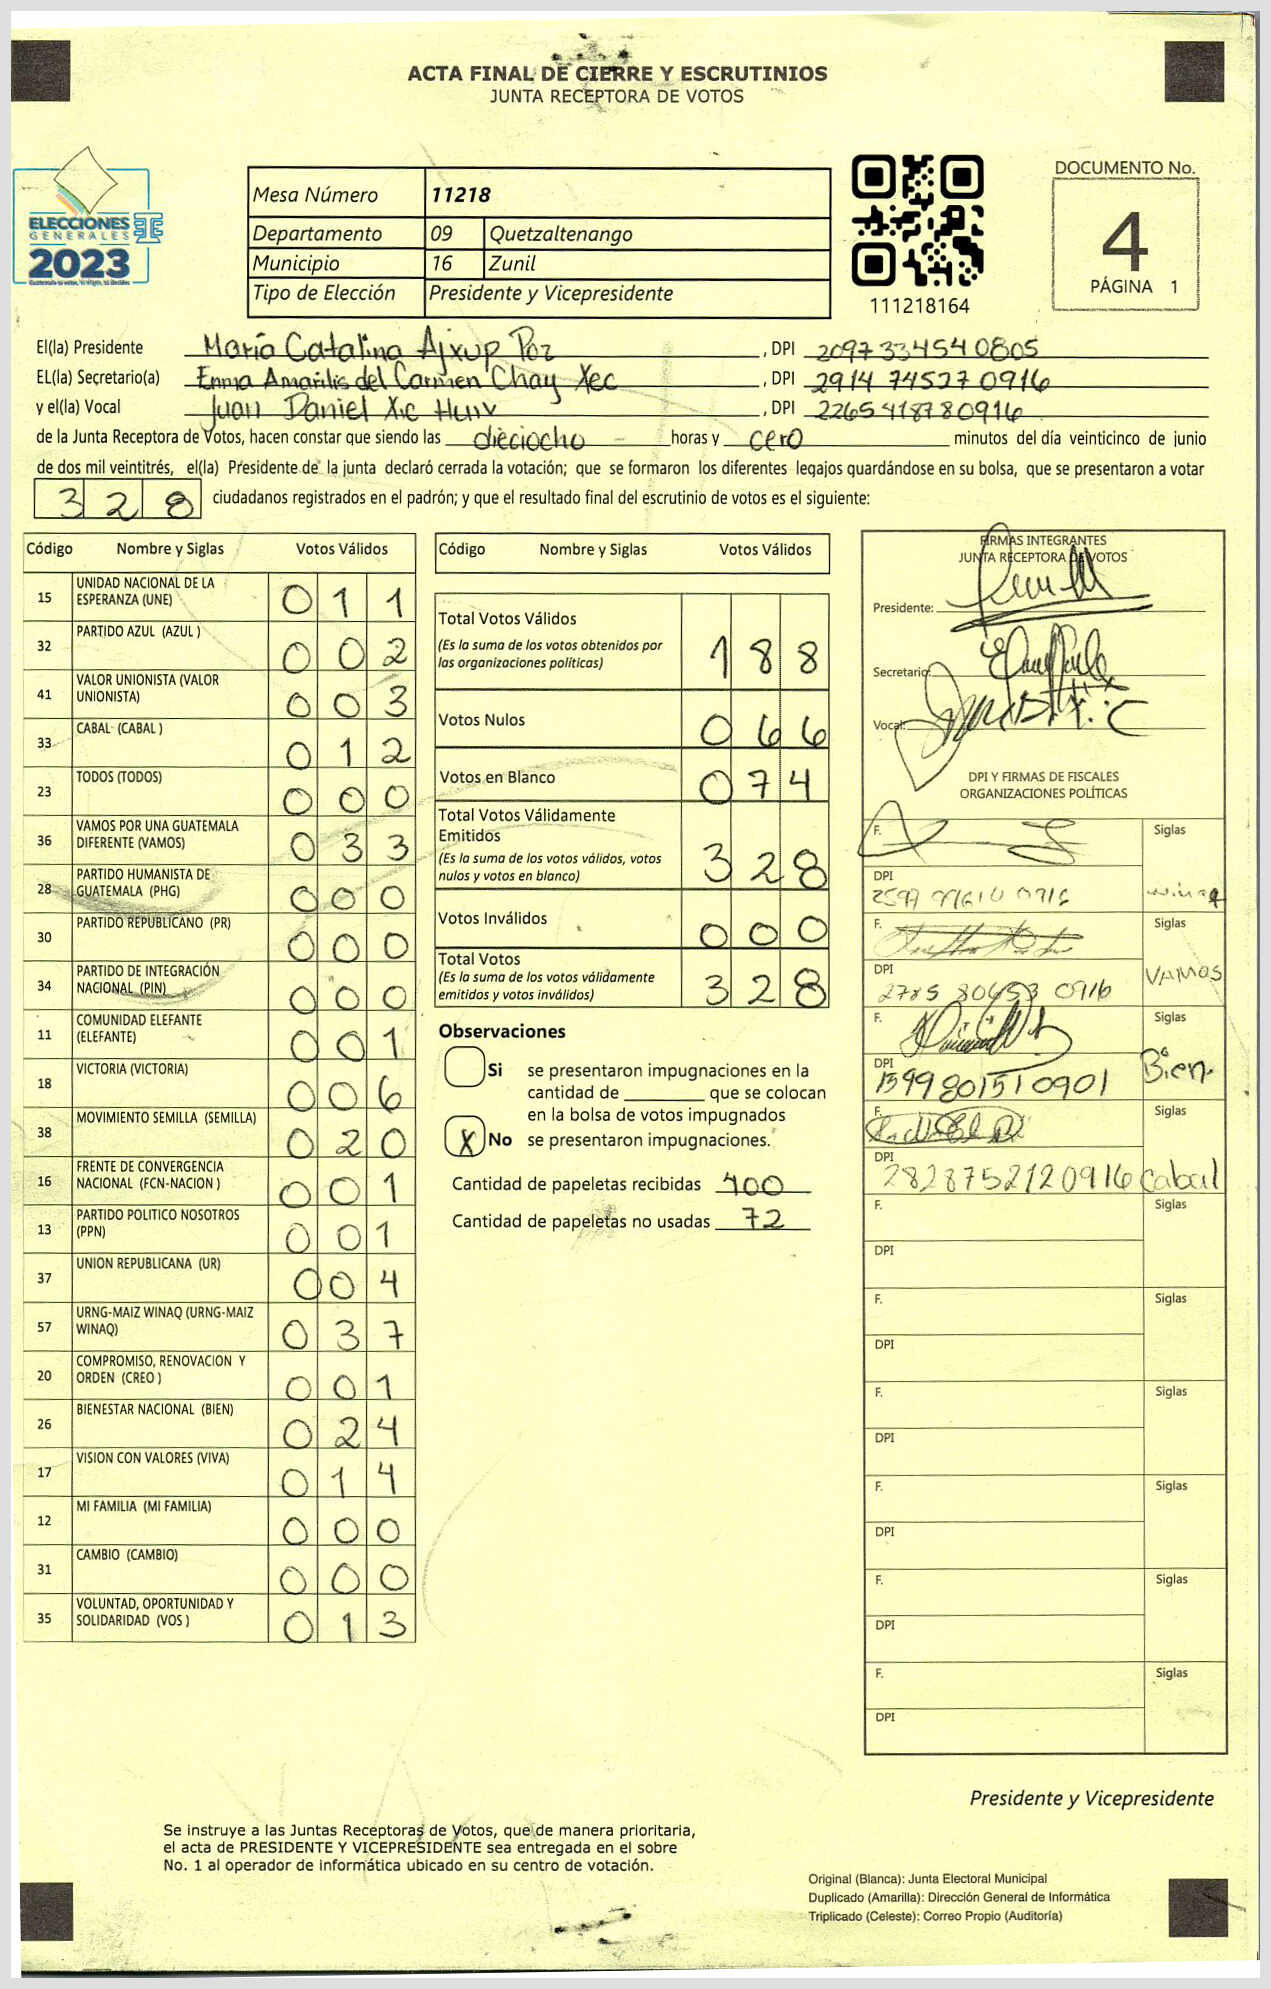 ACTA FINAL DE CIERRE Y ESCRUTINIOS
JUNTA RECEPTORA DE VOTOS
ELECCIONES
GENERALES
2023
Mesa Número 11218
Departamento 09 Quetzaltenango
Municipio 16 Zunil
Tipo de Elección Presidente y Vicepresidente
111218164
DOCUMENTO No.
4
PÁGINA 1
El(la) Presidente María Catalina Ajxup Poz, DPI 2097334540805
EL(la) Secretario(a) Enma Amarilis del Carmen Chay Xec, DPI 2914 74527 0916
y el(la) Vocal Juan Daniel Xic, DPI 2265418780916
de la Junta Receptora de Votos, hacen constar que siendo las dieciocho horas y cero minutos del día veinticinco de junio
de dos mil veintitrés, el(la) Presidente de la junta declaró cerrada la votación; que se formaron los diferentes legajos guardándose en su bolsa, que se presentaron a votar
328 ciudadanos registrados en el padrón; y que el resultado final del escrutinio de votos es el siguiente:
Código Nombre y Siglas Votos Válidos
15 UNIDAD NACIONAL DE LA ESPERANZA (UNE) 011
32 PARTIDO AZUL (AZUL ) 002
41 VALOR UNIONISTA (VALOR UNIONISTA) 003
33 CABAL (CABAL ) 012
23 TODOS (TODOS) 000
36 VAMOS POR UNA GUATEMALA DIFERENTE (VAMOS) 033
28 PARTIDO HUMANISTA DE GUATEMALA (PHG) 000
30 PARTIDO REPUBLICANO (PR) 000
34 PARTIDO DE INTEGRACIÓN NACIONAL (PIN) 000
11 COMUNIDAD ELEFANTE (ELEFANTE) 001
18 VICTORIA (VICTORIA) 006
38 MOVIMIENTO SEMILLA (SEMILLA) 020
16 FRENTE DE CONVERGENCIA NACIONAL (FCN-NACION ) 001
13 PARTIDO POLITICO NOSOTROS (PPN) 001
37 UNION REPUBLICANA (UR) 004
57 URNG-MAIZ WINAQ (URNG-MAIZ WINAQ) 037
20 COMPROMISO, RENOVACION Y ORDEN (CREO ) 001
26 BIENESTAR NACIONAL (BIEN) 024
17 VISION CON VALORES (VIVA) 014
12 MI FAMILIA (MI FAMILIA) 000
31 CAMBIO (CAMBIO) 000
35 VOLUNTAD, OPORTUNIDAD Y SOLIDARIDAD (VOS ) 013
Código Nombre y Siglas Votos Válidos
Total Votos Válidos 188
(Es la suma de los votos obtenidos por
las organizaciones políticas)
Votos Nulos 066
Votos en Blanco 074
Total Votos Válidamente
Emitidos 328
(Es la suma de los votos válidos, votos
nulos y votos en blanco)
Votos Inválidos 000
Total Votos 328
(Es la suma de los votos válidamente
emitidos y votos inválidos)
Observaciones
Si se presentaron impugnaciones en la
cantidad de ________ que se colocan
en la bolsa de votos impugnados
X No se presentaron impugnaciones.
Cantidad de papeletas recibidas 400
Cantidad de papeletas no usadas 72
FIRMAS INTEGRANTES
JUNTA RECEPTORA DE VOTOS
Presidente:
Secretario:
Vocal:
DPI Y FIRMAS DE FISCALES
ORGANIZACIONES POLÍTICAS
F. Siglas
DPI
winaq
F. Siglas
DPI VAMOS
2785 80653 0916
F. Siglas
DPI Bien.
1599801510901
F. Siglas
DPI
2828752120916 Cabal
F. Siglas
DPI
F. Siglas
DPI
F. Siglas
DPI
F. Siglas
DPI
F. Siglas
DPI
F. Siglas
DPI
Presidente y Vicepresidente
Se instruye a las Juntas Receptoras de Votos, que de manera prioritaria,
el acta de PRESIDENTE Y VICEPRESIDENTE sea entregada en el sobre
No. 1 al operador de informática ubicado en su centro de votación.
Original (Blanca): Junta Electoral Municipal
Duplicado (Amarilla): Dirección General de Informática
Triplicado (Celeste): Correo Propio (Auditoría)